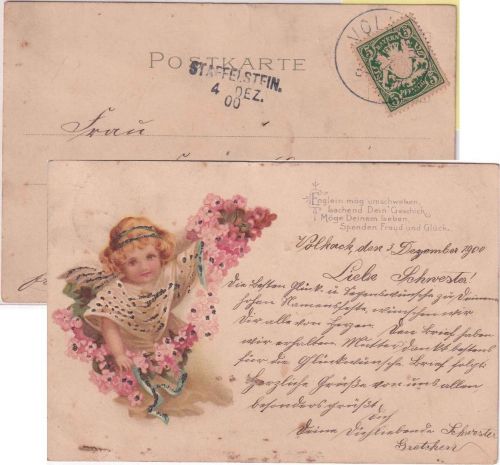 POSTKARTE
STAFFELSTEIN.
4 DEZ.
00
VOL
BAYERN
5 5
PFENNIG
Frau
Englein mög umschweben,
Lachend Dein Geschick,
Möge Deinem Leben,
Spenden Freud und Glück.
Volkach, den 3. Dezember 1900
Liebe Schwester!
Die besten Glück- u. Segenswünsche zu Deinem
hohen Namensfeste, wünschen wir
Dir alle von Herzen. Den Brief haben
wir erhalten Mutter dankt bestens
für die Glückwünsche Brief folgt.
Herzliche Grüße von uns allen
besonders grüßt
Dich
Deine Dichliebende Schwester
Gretchen